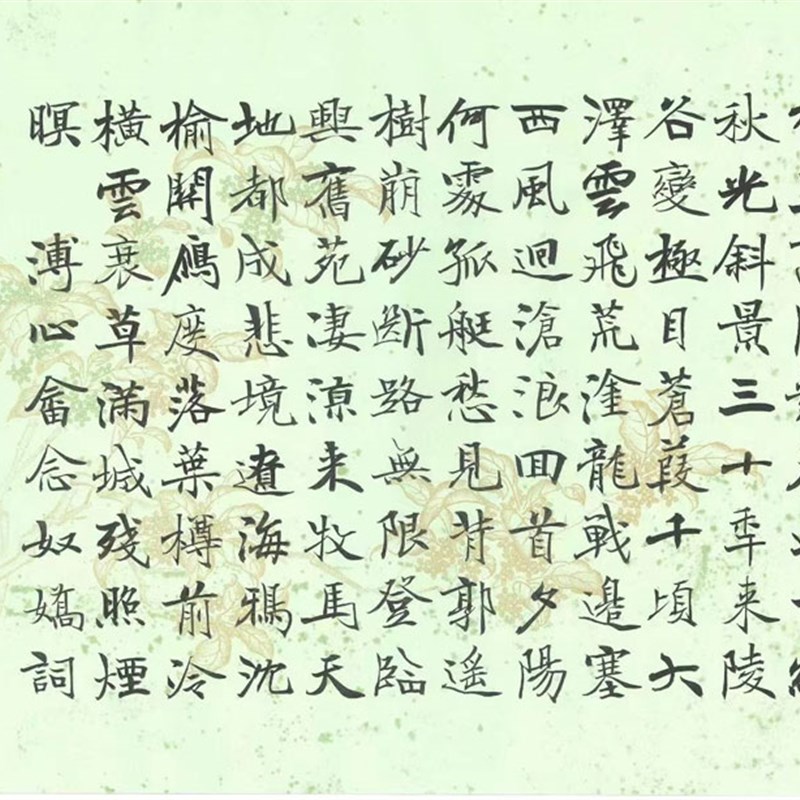 秋光斜景三十秊来陵
谷變極目蒼葭千頃大
澤雲飛荒塗龍戰邉塞
西風迴滄浪囬首夕陽
何處孤艇愁見背郭遥
樹崩砂斷路無限登臨
興舊苑凄涼来牧馬天
地都成悲境遼海鴉沈
榆關鴈度落葉樽前冷
橫雲衰草滿城殘照煙
暝 溥心畬念奴嬌詞